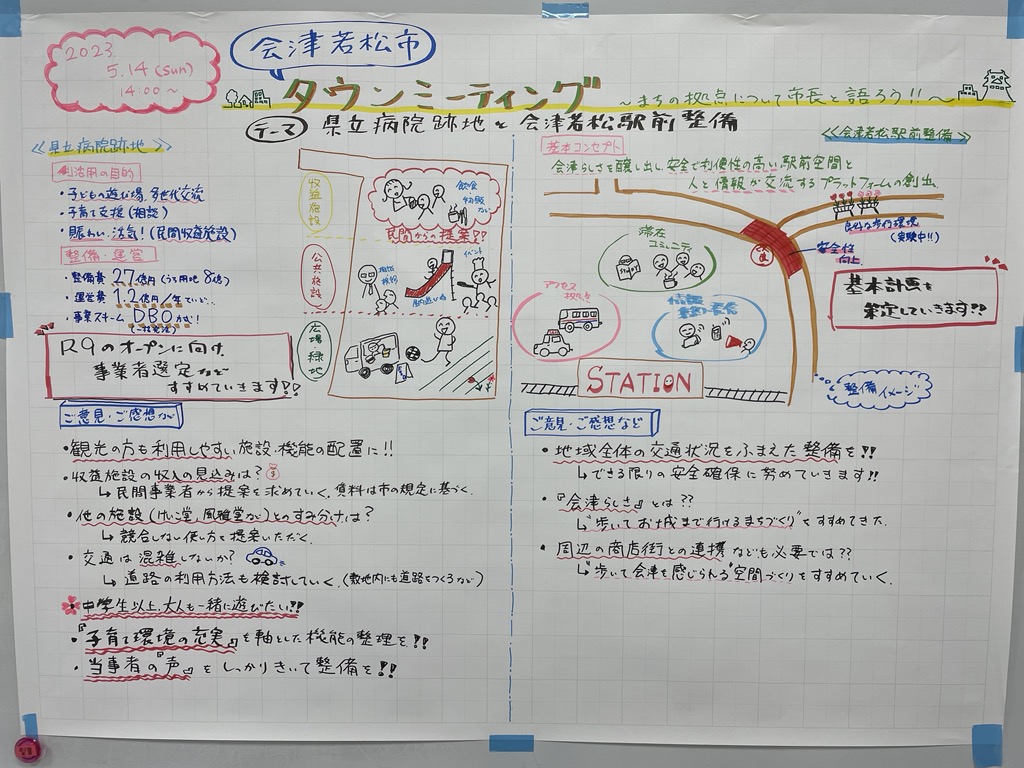 2023
5.14 (sun)
14:00〜
会津若松市
タウンミーティング
〜まちの拠点について市長と語ろう!!〜
テーマ 県立病院跡地と会津若松駅前整備
≪県立病院跡地≫
利活用の目的
・子どもの遊び場、多世代交流
・子育て支援(相談)
・賑わい・活気!(民間収益施設)
整備・運営
・整備費 27億円(うち用地8億)
・事業スキーム DBO方式!
R9のオープンに向け、
事業者選定など
すすめていきます!!
収益施設
公共施設
広場・緑地
飲食
物販
など
民間からの提案!!
相談
イベント
≪会津若松駅前整備≫
基本コンセプト
会津らしさを醸し出し安全で利便性の高い駅前空間と
人と情報が交流するプラットフォームの創出
良好な歩行環境
(実験中!!)
安全性
向上
滞在
コミュニティ
START
アクセス
拠点
情報
集約・発信
STATION
基本計画を
策定していきます!!
整備イメージ
ご意見・ご感想など
・観光の方も利用しやすい施設・機能の配置に!!
・収益施設の収入の見込みは?
↳民間事業者から提案を求めていく。賃料は市の規定に基づく。
・他の施設(けいこ堂、風雅堂など)とのすみ分けは?
↳競合しない使い方を提案いただく。
・交通は混雑しないか?
↳道路の利用方法も検討していく。(敷地内にも道路をつくるなど)
中学生以上、大人も一緒に遊びたい!!
・『子育て環境の充実』を軸とした機能の整理を!!
・当事者の『声』をしっかりきいて整備を!!
ご意見・ご感想など
・地域全体の交通状況をふまえた整備を!!
↳できる限りの安全確保に努めていきます!!
・『会津らしさ』とは??
↳"歩いてお城まで行けるまちづくり"をすすめてきた。
・周辺の商店街との連携なども必要では??
↳"歩いて会津を感じられる"空間づくりをすすめていく。